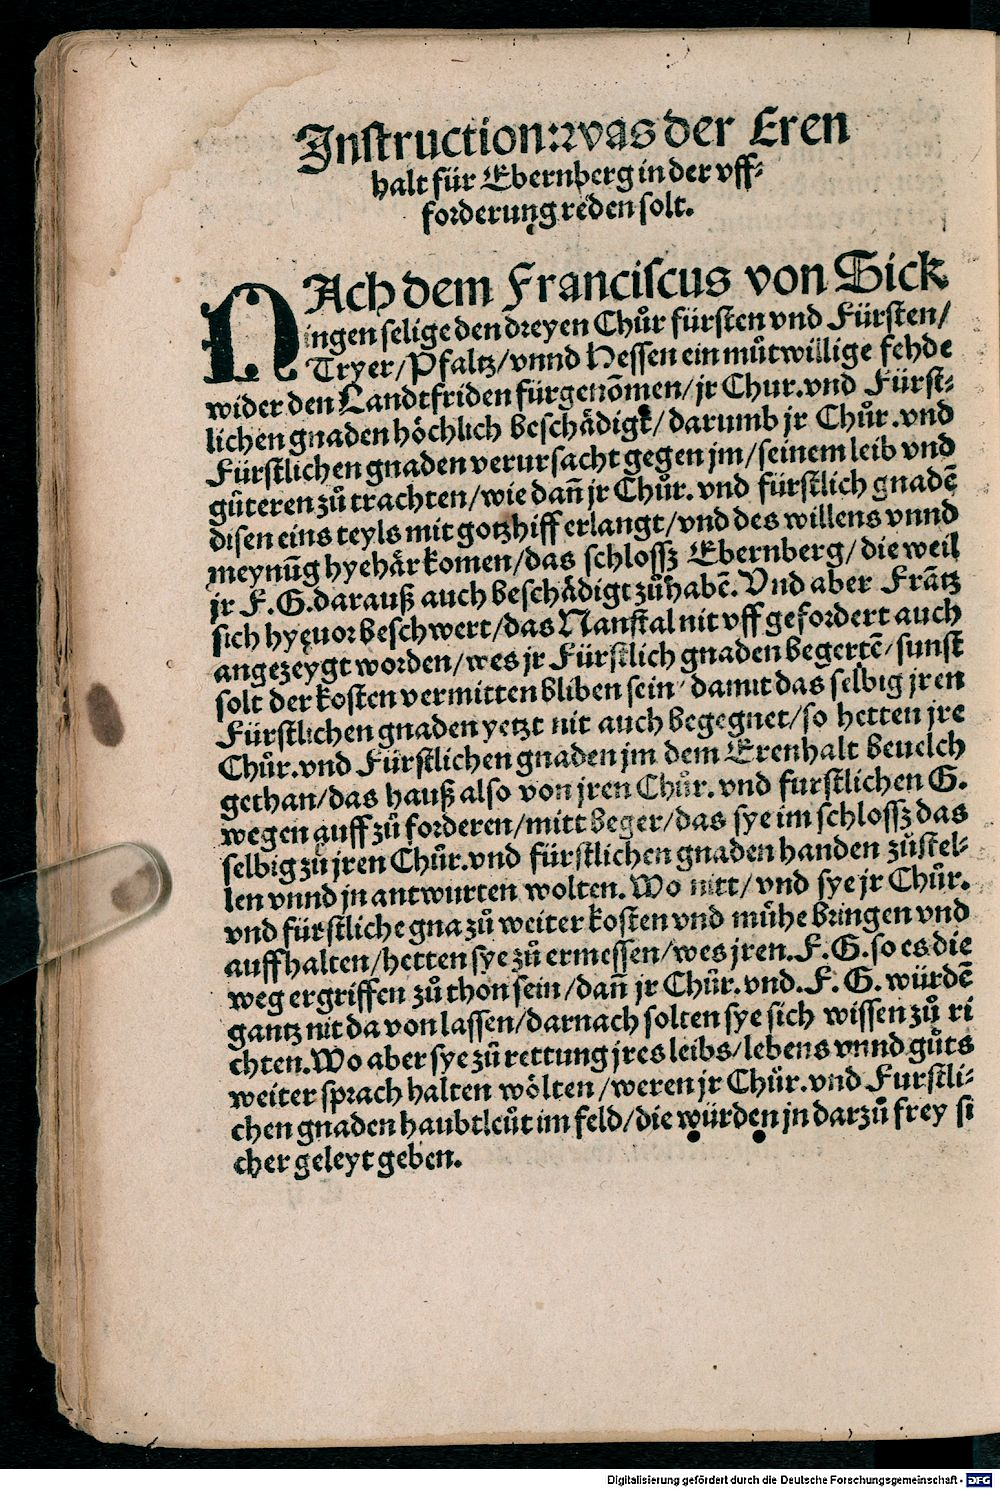 Instruction: was der Eren
halt für Ebernberg in der vff-
forderung reden solt.
NAch dem Franciscus von Sick
ingen selige den dreyen Chůr fürsten vnd Fürsten/
Tryer/Pfaltz/vnnd Hessen ein můtwillige fehde
wider den Landtfriden fürgenōmen/jr Chur.vnd Fürst-
lichen gnaden höchlich beschädigt/darumb jr Chůr.vnd
Fürstlichen gnaden verursacht gegen jm/seinem leib vnd
gůteren zů trachten/wie dañ jr Chůr. vnd fürstlich gnadē
disen eins teyls mit gotzhiff erlangt/vnd des willens vnnd
meynūg hyehär komen/das schlossz Ebernberg/die weil
jr F.G.darauß auch beschädigt zůhabē. Vnd aber Frātz
sich hyeuor beschwert/das Nanstal nit vff gefordert auch
angezeygt worden/wes jr Fürstlich gnaden begertē/sunst
solt der kosten vermitten bliben sein/damit das selbig jren
Fürstlichen gnaden yetzt nit auch begegnet/so hetten jre
Chůr.vnd Fürstlichen gnaden jm dem Erenhalt beuelch
gethan/das hauß also von jren Chůr.vnd furstlichen G.
wegen auff zů forderen/mitt beger/das sye im schlossz das
selbig zů jren Chůr.vnd fürstlichen gnaden handen zůstel-
len vnnd jn antwurten wolten. Wo nitt/vnd sye jr Chůr.
vnd fürstliche gna zů weiter kosten vnd můhe bringen vnd
auffhalten/hetten sye zů ermessen/wes jren.F.G.so es die
weg ergriffen zů thon sein/dañ jr Chůr.vnd.F.G.würdē
gantz nit da von lassen/darnach solten sye sich wissen zů ri
chten.Wo aber sye zů rettung jres leibs/lebens vnnd gůts
weiter sprach halten wölten/weren jr Chůr.vnd Furstli-
chen gnaden haubtleůt im feld/die würden jn darzů frey si
cher geleyt geben.
Digitalisierung gefördert durch die Deutsche Forschungsgemeinschaft - DFG